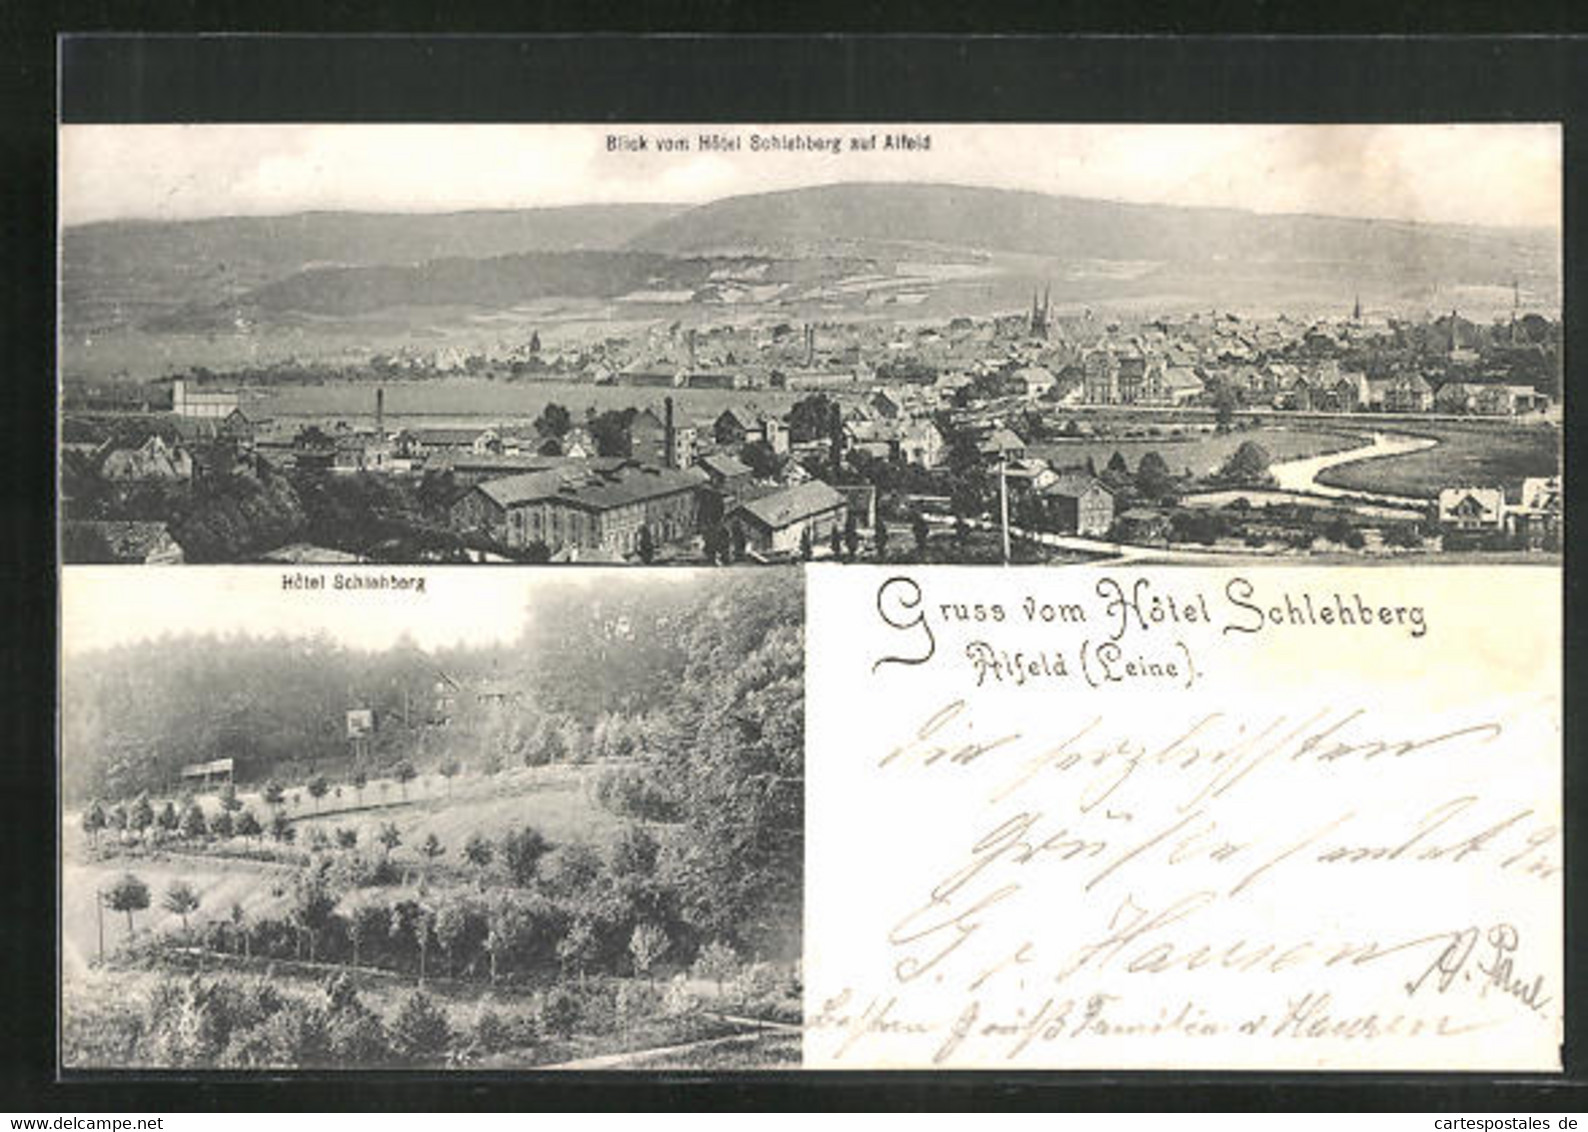 Blick vom Hôtel Schlehberg auf Alfeld
Hôtel Schlehberg
Gruss vom Hôtel Schlehberg
Alfeld (Leine).
Die herzlichsten
Grüße sendet
G. v. Hausen
A. Paul.
Besten Gruß Familie v Hausen
cartespostales de